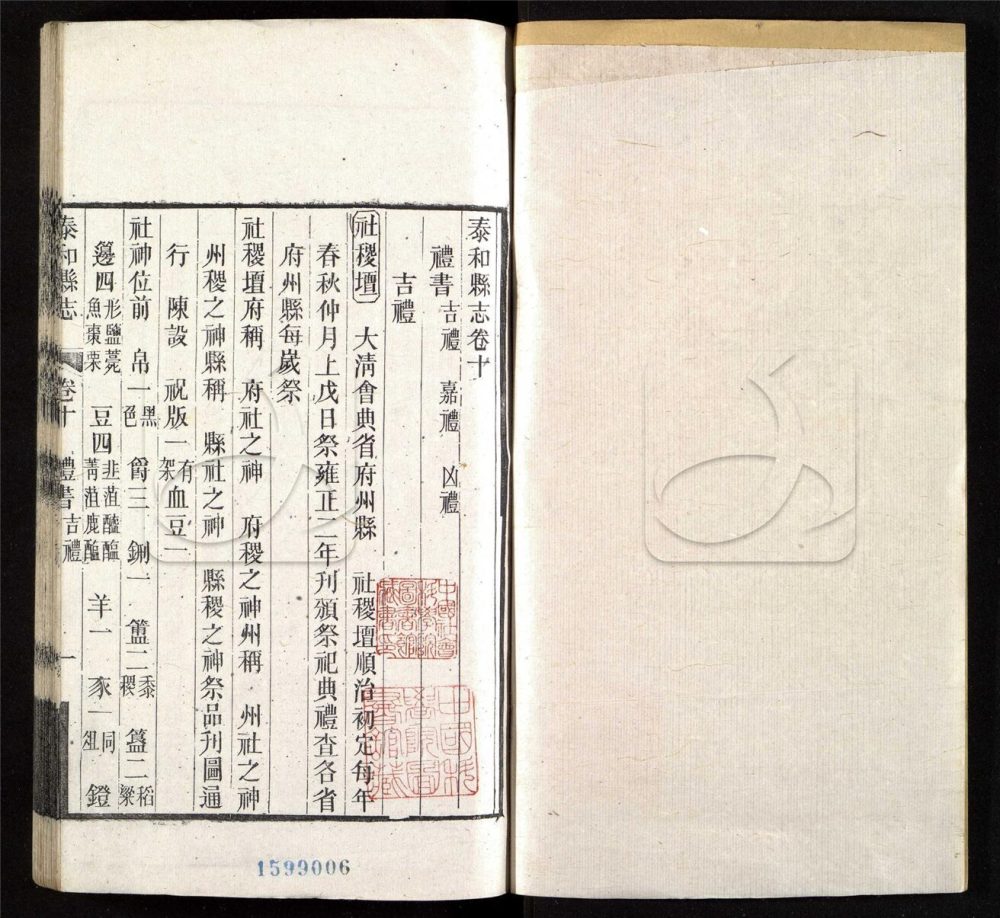 泰和縣志卷十
禮書 吉禮 嘉禮 凶禮
吉禮
社稷壇 大淸會典省府州縣 社稷壇順治初定每年
春秋仲月上戊日祭雍正二年刋頒祭祀典禮查各省
府州縣每歲祭
社稷壇府稱 府社之神 府稷之神州稱 州社之神
州稷之神縣稱 縣社之神 縣稷之神祭品刋圖通
行 陳設 祝版一有架血豆一
社神位前 帛一黑色 爵三 鉶一 簠二黍稷 簋二稻粱
籩四形鹽薧魚棗栗 豆四韭菹醓醢菁菹鹿醢 羊一 豕一同俎 鐙
泰和縣志 卷十 禮書 吉禮 一
中國社會科學院圖書館藏書印
中國科學院圖書館藏
1599006